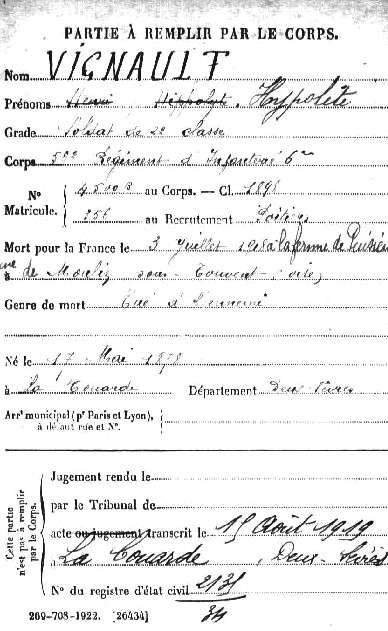 PARTIE À REMPLIR PAR LE CORPS.
Nom VIGNAULT
Prénoms Henri Hippolyte. Hyppolite
Grade Soldat de 2e classe
Corps 50e Régiment d'Infanterie 6e
N° Matricule. 4500 au Corps. — Cl. 1898
256 au Recrutement Poitiers
Mort pour la France le 3 Juillet 1918 à la ferme de
à de Moulin sous Touvent (Oise)
Genre de mort Tué à l'ennemi
Né le 17 Mai 1878
à La Couarde Département Deux-Sèvres
Arrt municipal (pr Paris et Lyon), à défaut rue et N°.
Cette partie n'est pas à remplir par le Corps.
Jugement rendu le
par le Tribunal de
acte ou jugement transcrit le 15 Août 1919
à La Couarde, Deux-Sèvres
N° du registre d'état civil 2135
34
269-708-1922. [26434]